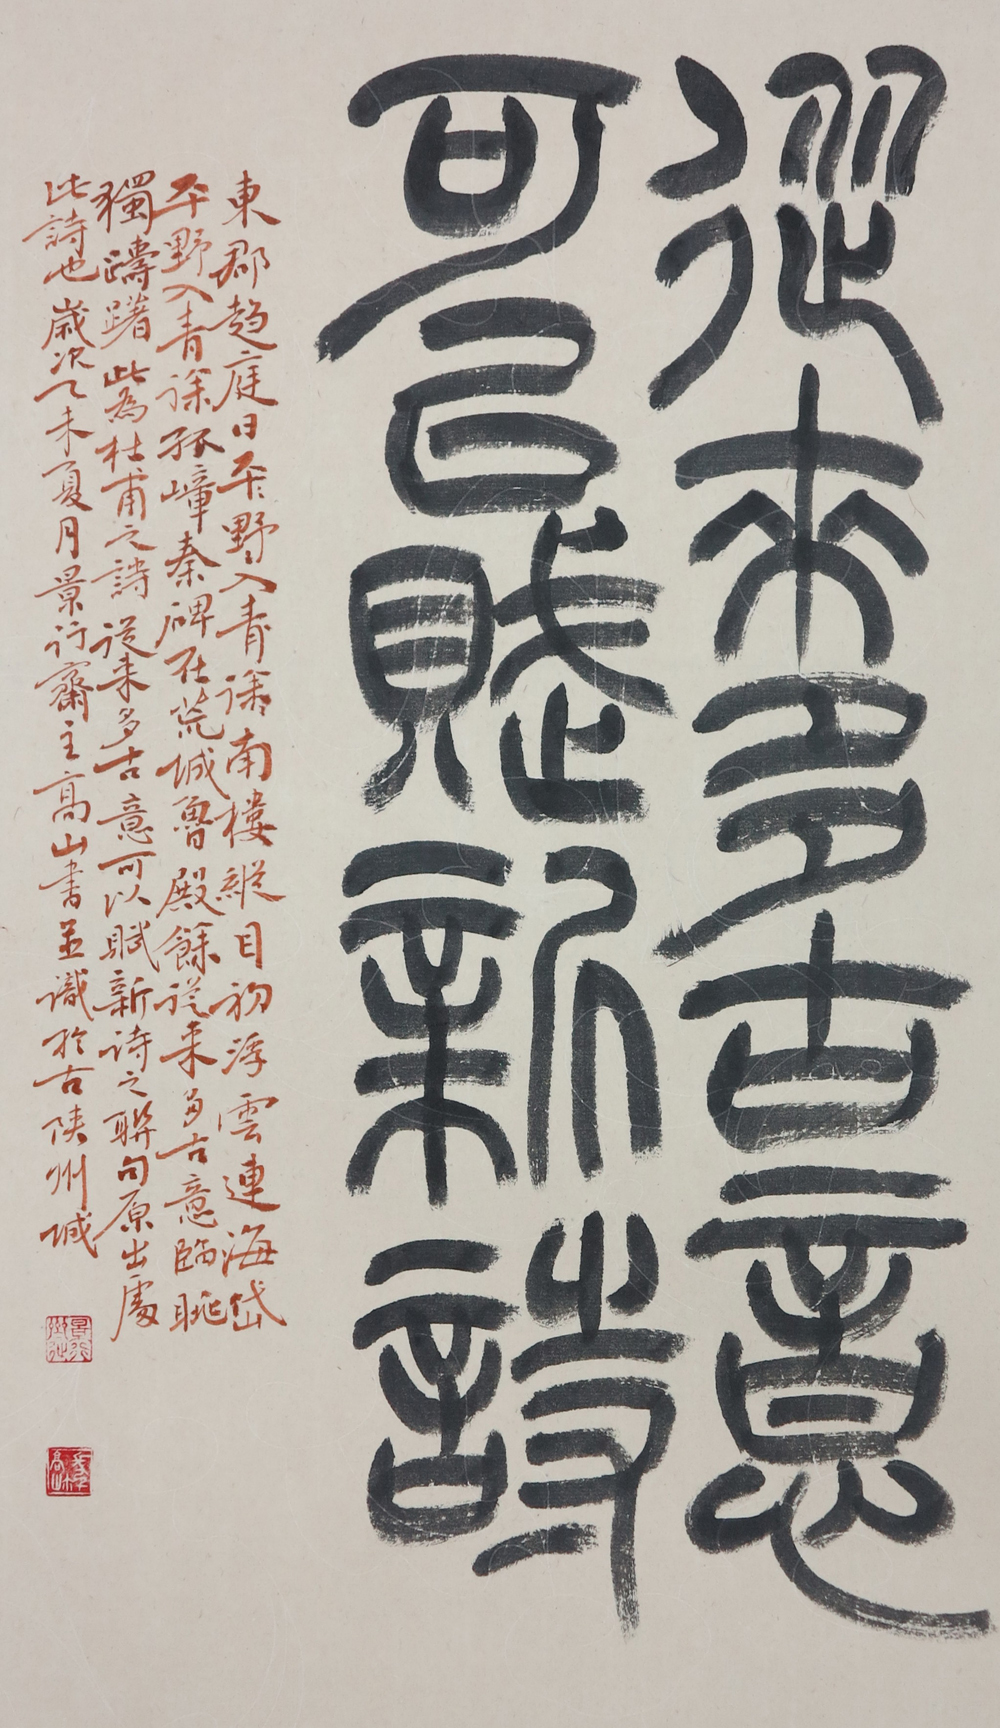 從來多古意
可以賦新詩
東郡趨庭日平野入青徐南樓縱目初浮雲連海岱
平野入青徐孤嶂秦碑在荒城魯殿餘從來多古意臨眺
獨躊躇此為杜甫之詩從来多古意可以賦新詩之聯句原出處
此詩也歲次乙未夏月景行齋主高山書並識於古陝州城